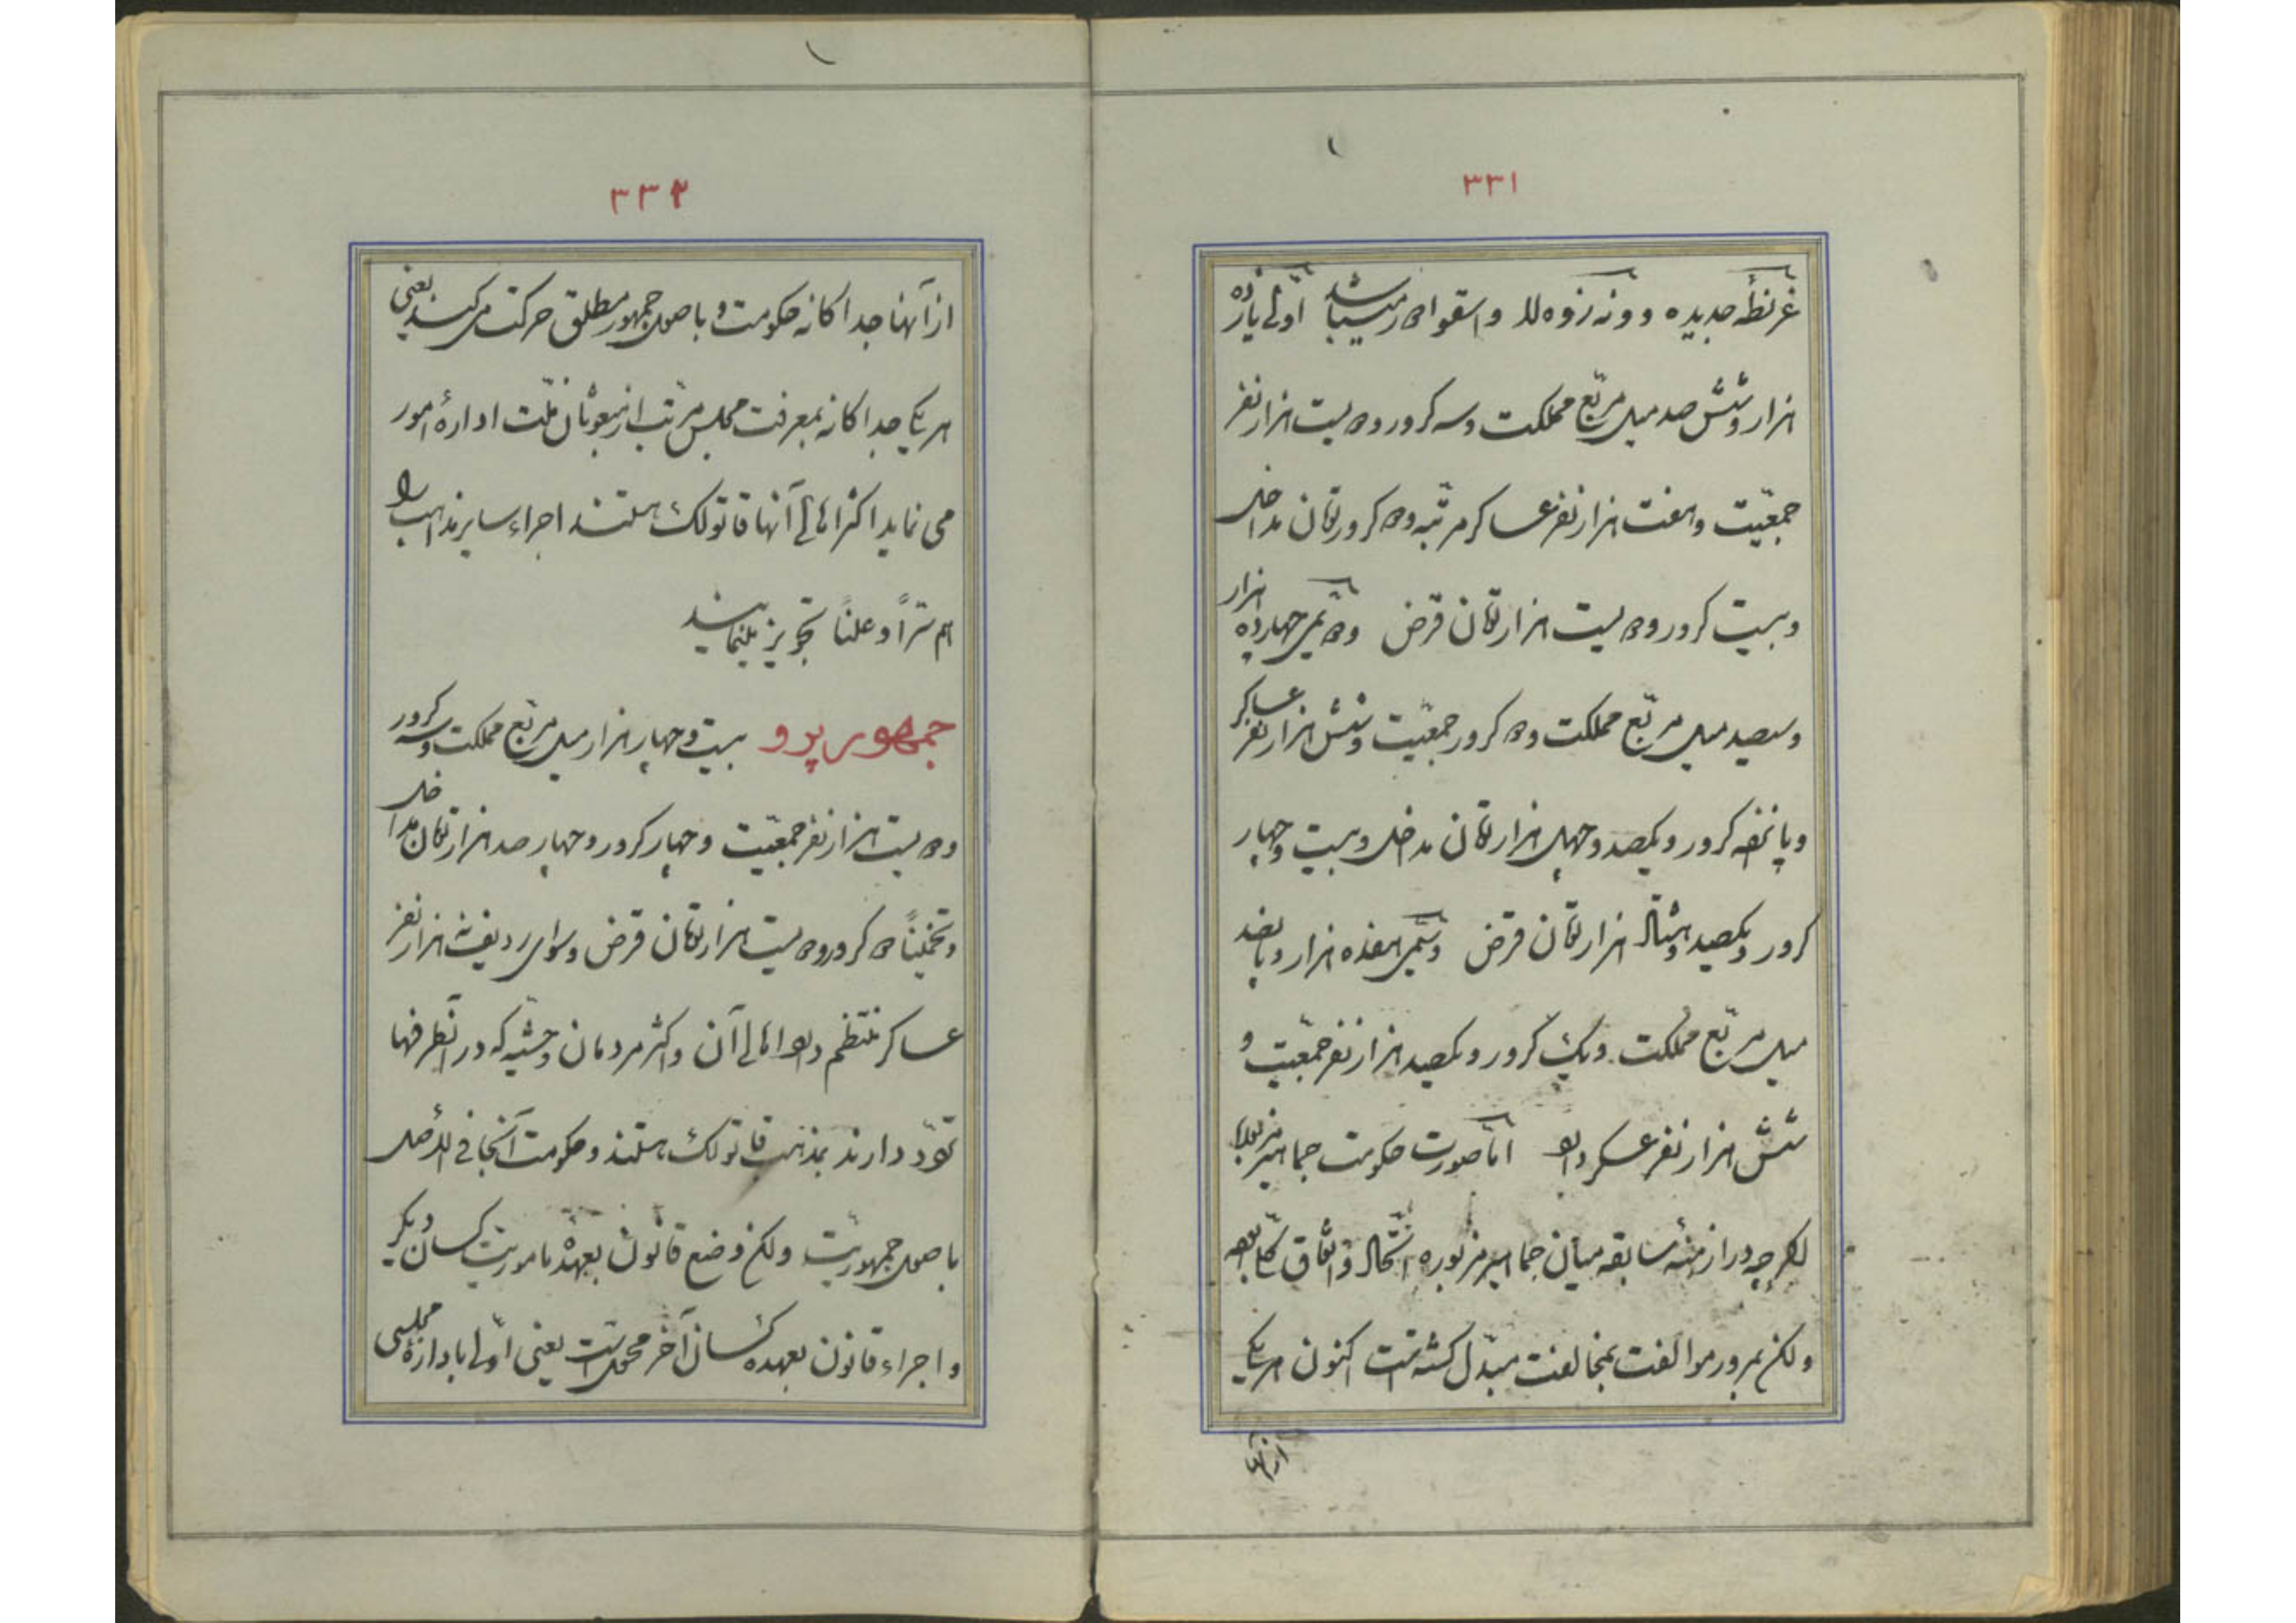 ۳۳۱
غرنطهٔ جدیده و ونه‌زوه‌لا و اسقوادر میباشد اولی یازده
هزار و شش صد میل مربع مملکت و سه کرور و دویست هزار نفر
جمعیت و هفت هزار نفر عساکر مرتبه و دو کرور تومان مداخل
و بیست کرور و دویست هزار تومان قرض و دویمی چهارده هزار
و سیصد میل مربع مملکت و دو کرور جمعیت و شش هزار نفر عساکر
و پانزده کرور و یکصد و چهل هزار تومان مداخل و بیست و چهار
کرور و یکصد و هشتاد هزار تومان قرض و سیمی هفده هزار و پانصد
میل مربع مملکت و یک کرور و یکصد هزار نفر جمعیت و
شش هزار نفر عسکر دارد اما صورت حکومت جماهیر مزبوره
اگرچه در ازمنهٔ سابقه میان جماهیر مزبوره اتحاد و اتفاق کلی بوده
ولکن بمرور موالفت بمخالفت مبدل گشته است اکنون هر یک
از آنها
۳۳۲
از آنها جداگانه حکومت و باصول جمهور مطلق حرکت می‌کنند یعنی
هر یک جداگانه بمعرفت مجلس مرتب از مبعوثان ملت ادارهٔ امور
می نماید اکثر اهالی آنها قاتولک هستند اجراء سایر مذاهب را
هم سرّاً و علناً تجویز مینمایند
جمهور پرو بیست و چهار هزار میل مربع مملکت و سه کرور
و دویست هزار نفر جمعیت و چهار کرور و چهار صد هزار تومان مداخل
و تخمیناً ده کرور و دویست هزار تومان قرض و سوای ردیف نه هزار نفر
عساکر منتظم دارد اهالی آن و اکثر مردمان وحشیه که در آنطرفها
تودد دارند بمذهب قاتولک هستند و حکومت آنجا فی الاصل
باصول جمهوریت ولکن وضع قانون بعهدهٔ ماموریت کسان دیگر
و اجراء قانون بعهده کسان آخر محول است یعنی اولی بادارهٔ مجلسی